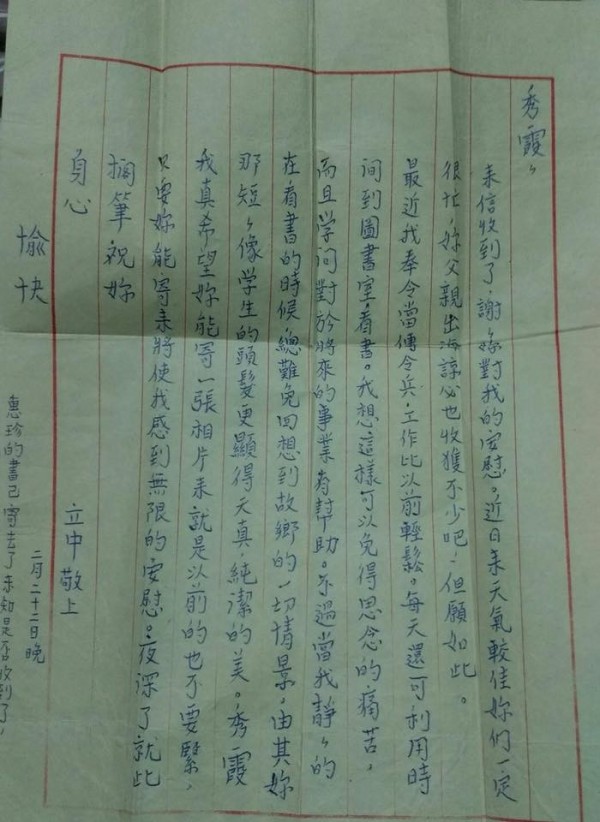 秀霞〻
来信收到了，謝〻妳對我的安慰。近日来天氣較佳妳們一定
很忙，妳父親出海諒必也收獲不少吧！但願如此。
最近我奉令當傳令兵，工作比以前輕鬆。每天還可利用時
间到圖書室看書。我想這樣可以免得思念的痛苦，
而且学问對於將來的事業有幫助。不過當我静〻的
在看書的時候總難免回想到故鄉的一切情景。由其妳
那短〻像学生的頭髮更顯得天真，純潔的美。秀霞
我真希望妳能寄一張相片来就是以前的也不要緊，
只要妳能寄来將使我感到無限的安慰。夜深了就此
擱筆祝妳
身心
愉快
立中敬上
二月二十二日晚
惠珍的書已寄去了未知是否收到了，